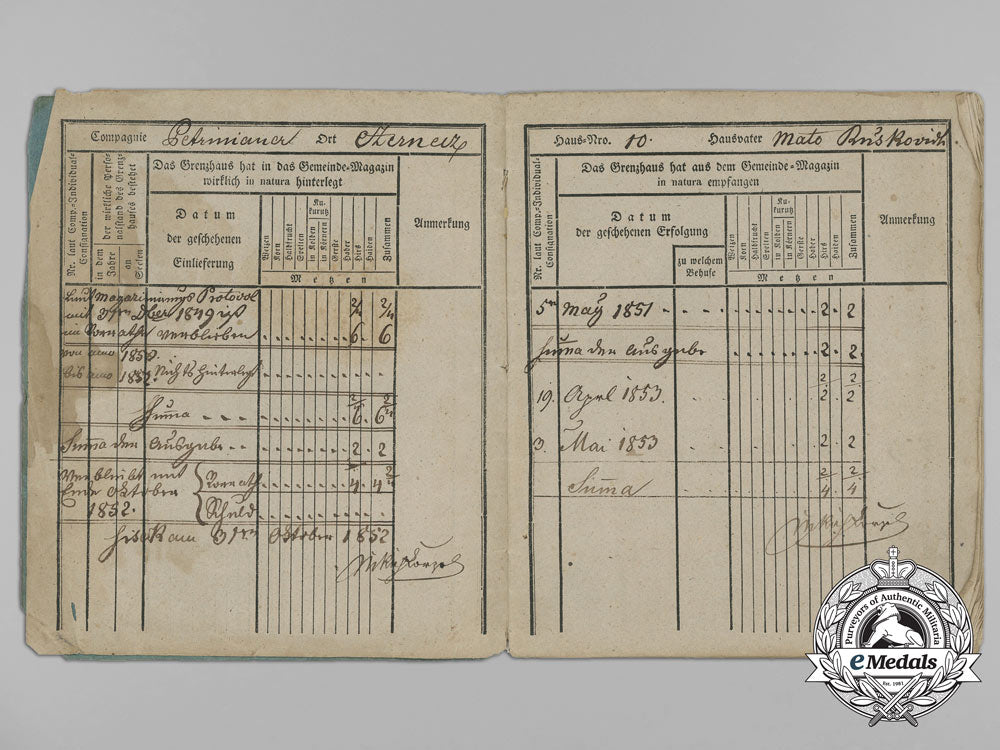 Compagnie Petrinianer Ort
Das Grenzhaus hat in das Gemeinde=Magazin
wirklich in natura hinterlegt
Nr. laut Comp.=Individual=
Consignation
der wirkliche Perso=
nalstand des Grenz=
hauses bestehet
in dem
Jahre
an
Seelen
Datum
der geschehenen
Einlieferung
Weizen
Korn
Halbfrucht
Spelten
Ku=
kurutz
in Kolben
in Körnern
Gerste
Haber
Hirs
Haiden
Zusammen
Metzen
Anmerkung
Laut Magazinirungs Protocol
mit 31ten 1849 ist
im Vorrathe verblieben 6. 6
von anno 1850.
bis anno 1852. Nichts hinterlegt
Suma 6. 6
Suma der Ausgabe 2. 2
Verbleibt mit Vorrath 4. 4
Ende Oktober
1852. Schuld
Sisek am 31ten Oktober 1852
Haus=Nro. 10. Hausvater Mato Ruskovich
Das Grenzhaus hat aus dem Gemeinde=Magazin
in natura empfangen
Nr. laut Comp.=Individual=
Consignation
Datum
der geschehenen Erfolgung
zu welchem
Behufe
Weizen
Korn
Halbfrucht
Spelten
Ku=
kurutz
in Kolben
in Körnern
Gerste
Haber
Hirs
Haiden
Zusammen
Metzen
Anmerkung
5n May 1851 2. 2
Suma der Ausgabe 2. 2
2. 2.
19. Aprl 1853. 2 2
3. Mai 1853 2 2
2 2
Suma 4 4
Purveyors of Authentic Militaria
eMedals
Est. 1981